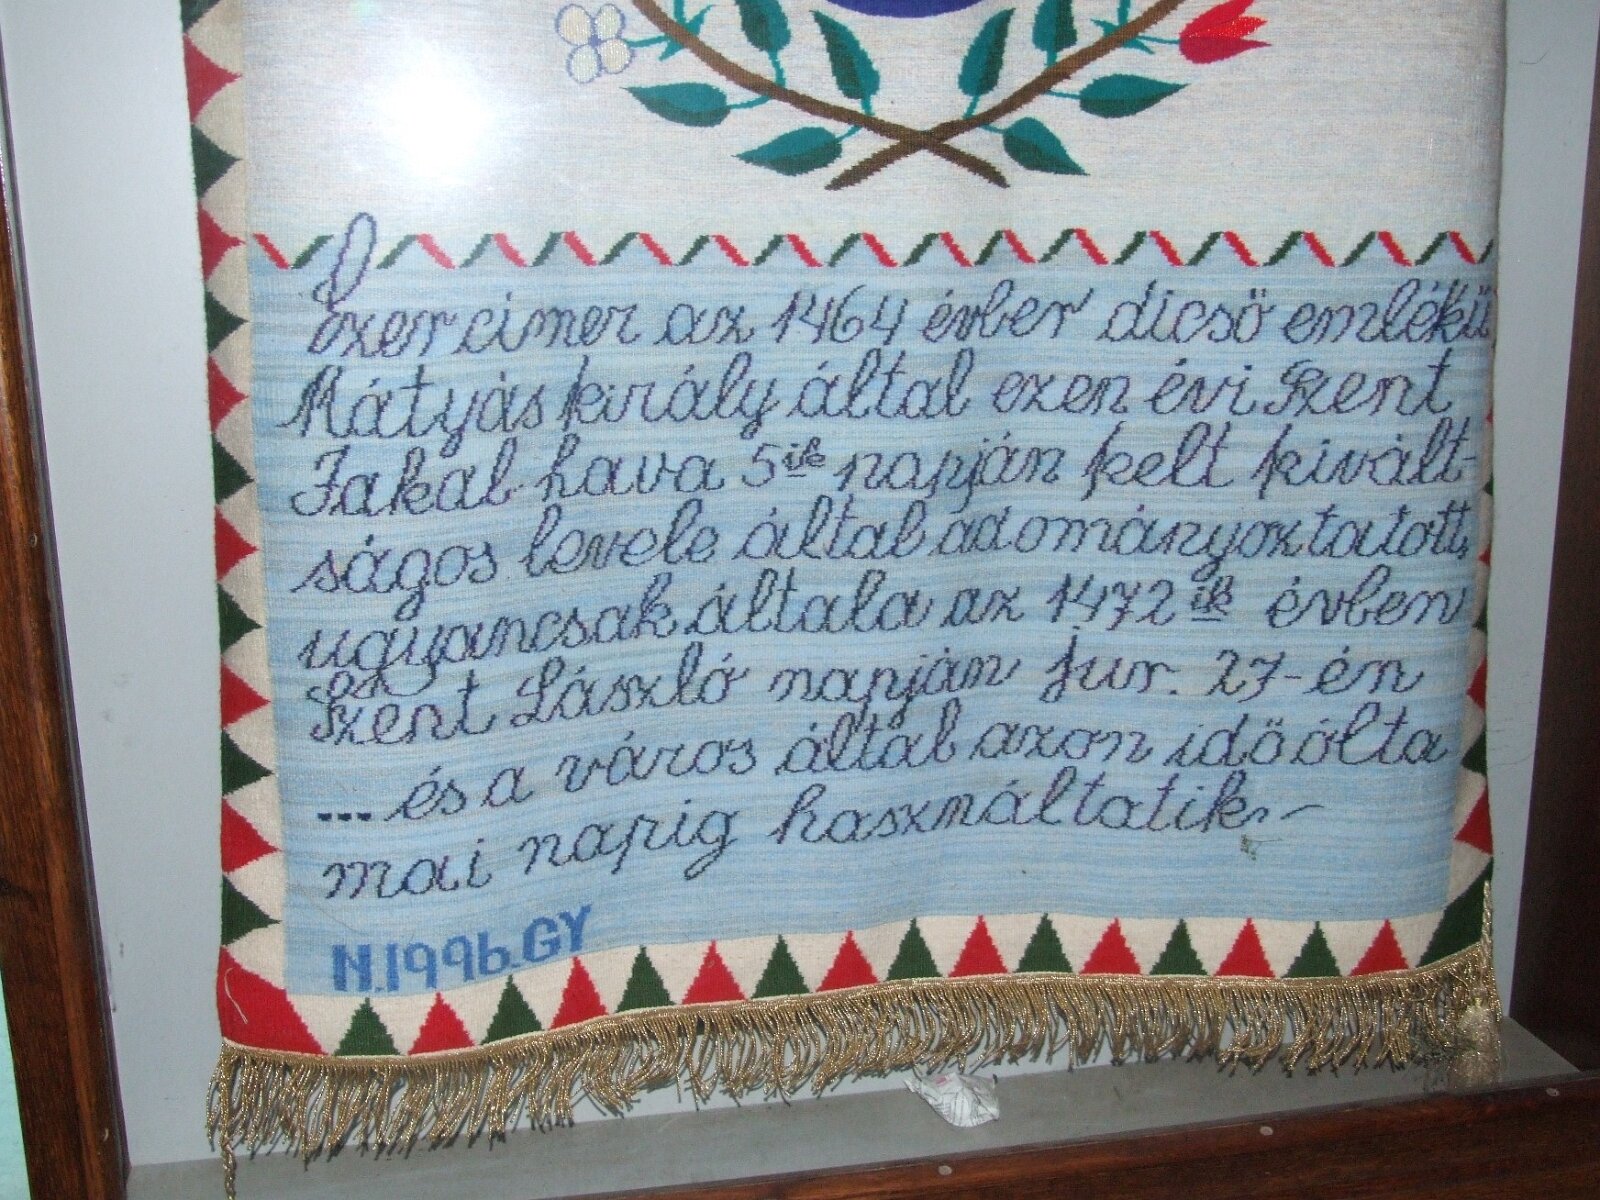 Ezer címer az 1464 évber dicső emlékű
Mátyás király által ezen évi Szent
Jakab hava 5ik napján kelt kivált-
ságos levele által adományoztatott,
ugyancsak általa az 1472 ik évben
Szent László napján jun. 27-én
... és a város által azon idő ólta
mai napig használtatik.-
N.1996.GY